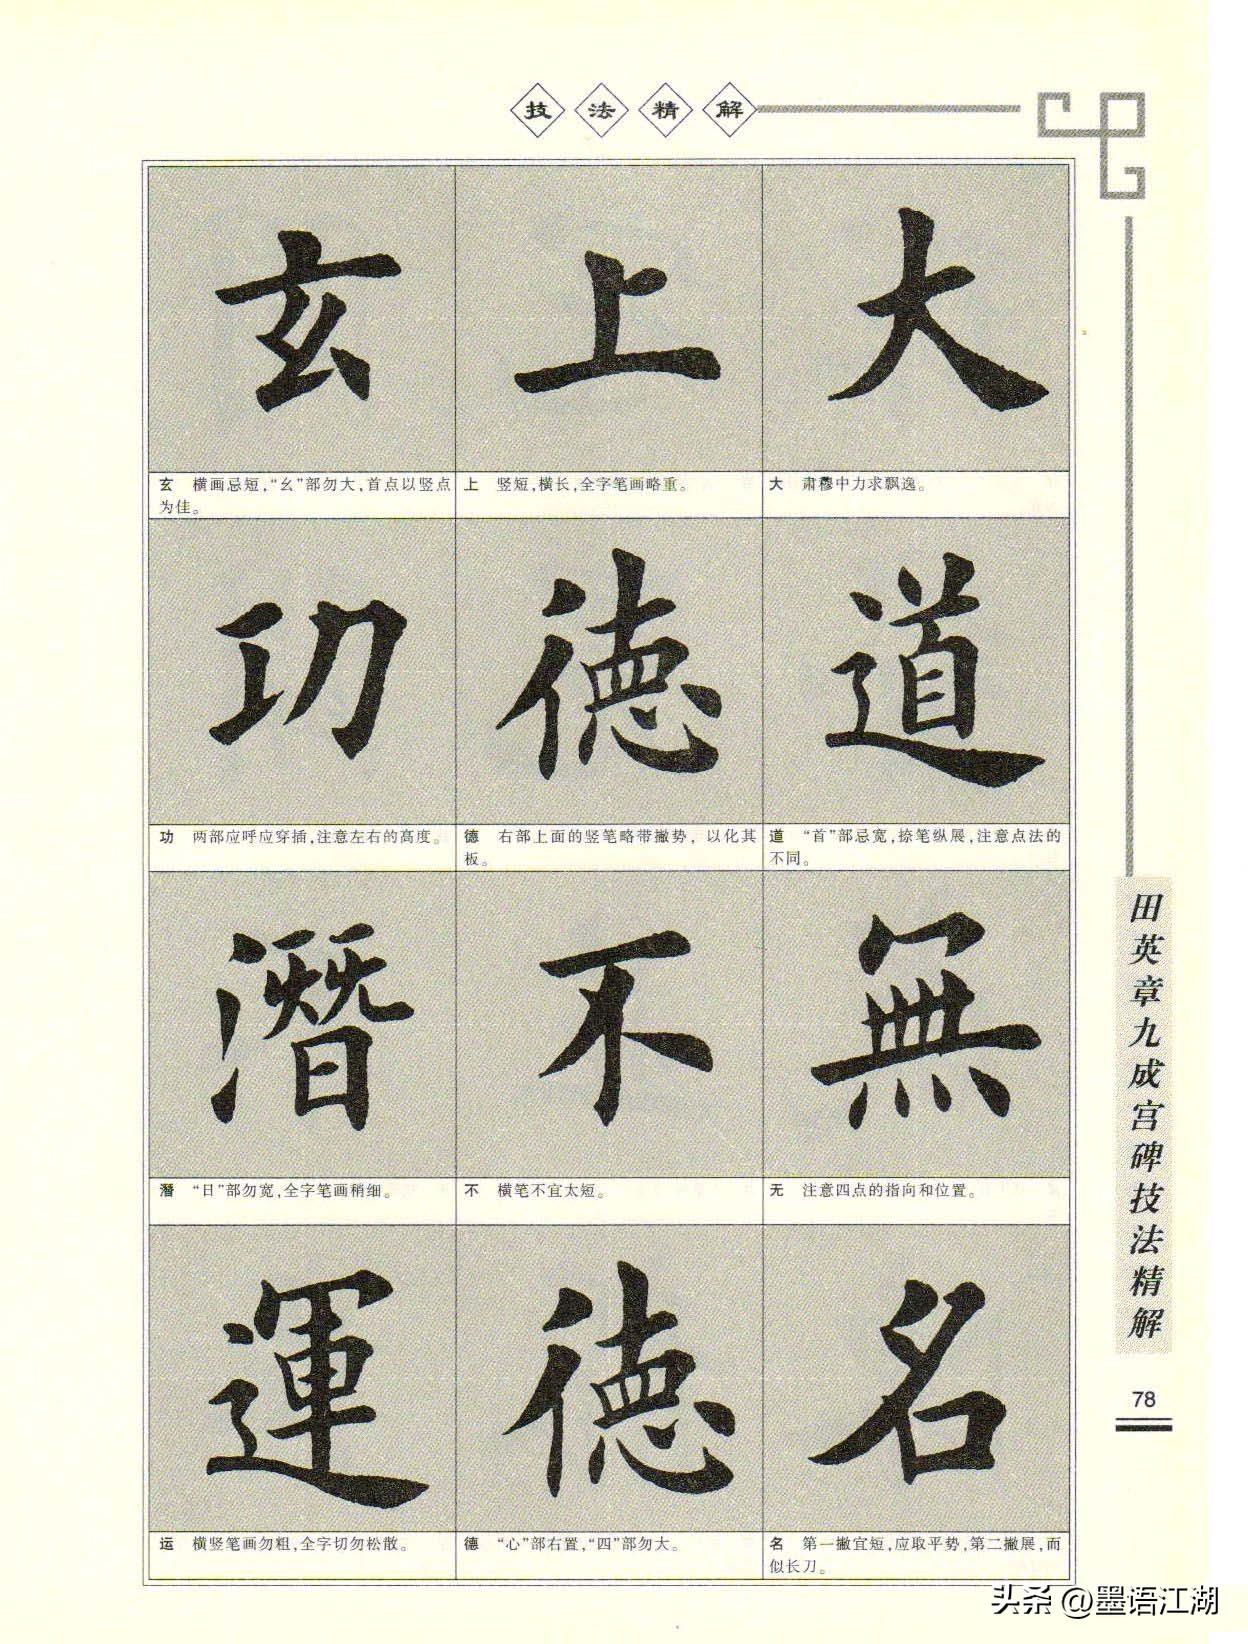 技法精解
玄 上 大
玄 横画忌短,“幺”部勿大,首点以竖点
为佳。
上 竖短,横长,全字笔画略重。
大 肃穆中力求飘逸。
功 德 道
功 两部应呼应穿插,注意左右的高度。
德 右部上面的竖笔略带撇势,以化其
板。
道 “首”部忌宽,捺笔纵展,注意点法的
不同。
潛 不 無
潛 “日”部勿宽,全字笔画稍细。
不 横笔不宜太短。
无 注意四点的指向和位置。
運 德 名
运 横竖笔画勿粗,全字切勿松散。
德 “心”部右置,“四”部勿大。
名 第一撇宜短,应取平势,第二撇展,而
似长刀。
田英章九成宫碑技法精解
78
头条 @墨语江湖